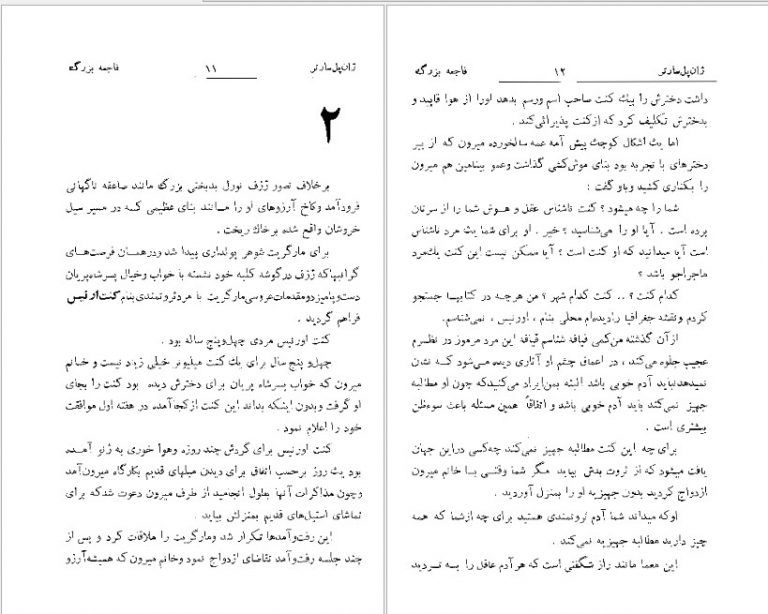 ژان‌پل‌سارتر ۱۱ فاجعه بزرگ
۲
برخلاف تصور ژزف نورل بدبختی بزرگ مانند صاعقه ناگهانی
فرودآمد وکاخ آرزوهای او را مانند بنای عظیمی که در مسیر سیل
خروشان واقع شده برخاک ریخت .
برای مارگریت شوهر پولداری پیدا شد ودرهمان فرصت‌های
گرانبهاکه ژزف درگوشه کلبه خود نشسته با خواب وخیال پسرشاه‌پریان
دست‌وپامیزد ومقدمات‌عروسی‌مارگریت با مردثروتمندی‌بنام کنت‌اورنیس
فراهم گردید .
کنت اورنیس مردی چهل‌وپنج ساله بود .
چهل‌و پنج سال برای یک کنت میلیونر خیلی زیاد نیست و خانم
میرون که خواب پسرشاه پریان برای دخترش دیده بود کنت را بجای
او گرفت وبدون اینکه بداند این کنت ازکجاآمده در هفته اول موافقت
خود را اعلام نمود .
کنت اورنیس برای گردش چند روزه وهوا خوری به ژنو آمده
بود یک روز برحسب اتفاق برای دیدن مبلهای قدیم بکارگاه میرون‌آمد
وچون مذاکرات آنها بطول انجامید از طرف میرون دعوت شدکه برای
تماشای استیل‌های قدیم بمنزلش بیاید .
این رفت‌وآمدها تکرار شد ومارگریت را ملاقات کرد و پس از
چند جلسه رفت‌وآمد تقاضای ازدواج نمود وخانم میرون که همیشه‌آرزو
ژان‌پل‌سارتر ۱۲ فاجعه بزرگ
داشت دخترش را بیک کنت صاحب اسم ورسم بدهد اورا از هوا قاپید و
بدخترش تکلیف کرد که ازکنت پذیرائی‌کند .
اما یک اشکال کوچک پیش آمد عمه سالخورده میرون که از پیر
دخترهای با تجربه بود بنای موش‌کشی گذاشت وعمو بنیامین هم میرون
را بکناری کشید وباو گفت :
شما را چه میشود ؟ کنت ناشناس عقل و هوش شما را از سرتان
برده است . آیا او را می‌شناسید ؟ خیر . او برای شما یک مرد ناشناس
است آیا میدانید که او کنت است ؟ آیا ممکن نیست این کنت یک‌مرد
ماجراجو باشد ؟
کدام کنت ؟ .. کنت کدام شهر ؟ من هرچه در کتابها جستجو
کردم ونقشه جغرافیا رادیده‌ام محلی بنام ، اورنیس ، نمی‌شناسم.
ازآن گذشته من‌کمی قیافه شناسم قیافه این مرد مرموز در نظرم
عجیب جلوه می‌کند ، در اعماق چشم او آثاری دیده می‌شود که نشان
نمیدهدنباید آدم خوبی باشد البته بمن‌ایراد می‌کنیدکه چون او مطالبه
جهیز نمی‌کند باید آدم خوبی باشد و اتفاقاً همین مسئله باعث سوءظن
بیشتری است .
برای چه این کنت مطالبه جهیز نمی‌کند چه‌کسی دراین جهان
یافت میشود که از ثروت بدش بیاید مگر شما وقتی با خانم میرون
ازدواج کردید بدون جهیزیه او را بمنزل آوردید .
اوکه میداند شما آدم ثروتمندی هستید برای چه ازشما که همه
چیز دارید مطالبه جهیزیه نمی‌کند .
این معما مانند راز شگفتی است که هرآدم عاقل را به تردید